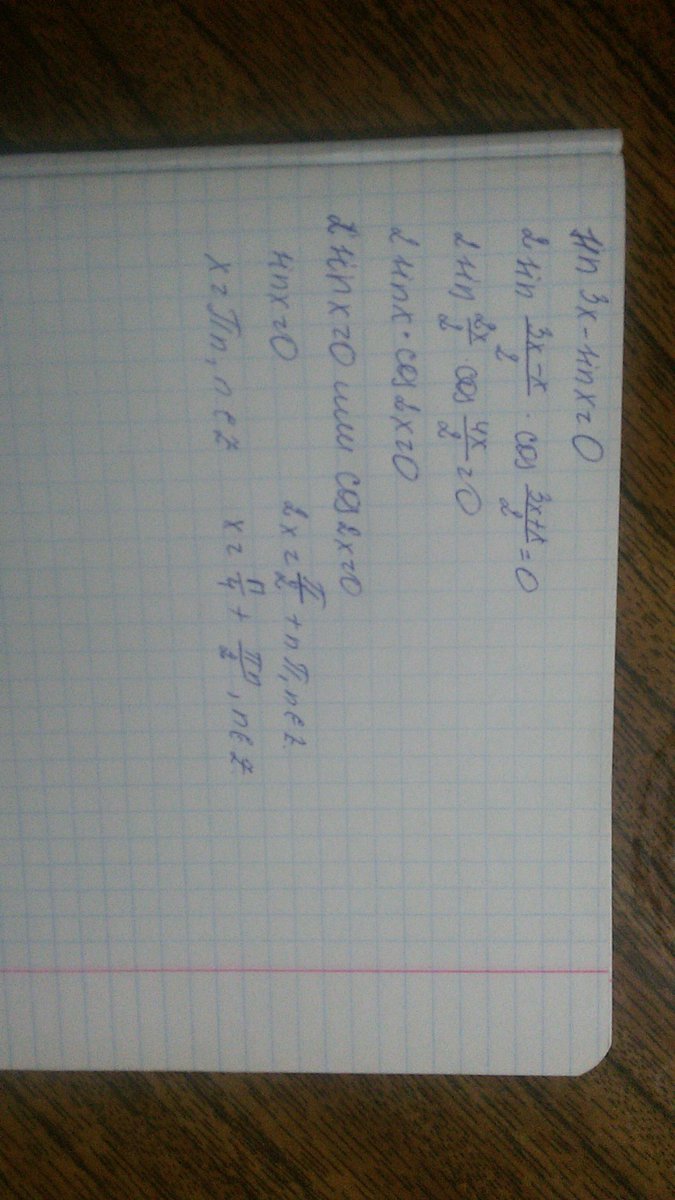 sin 3x - sin x = 0
2 sin (3x-x)/2 · cos (3x+x)/2 = 0
2 sin 2x/2 · cos 4x/2 = 0
2 sin x · cos 2x = 0
2 sin x = 0 или cos 2x = 0
sin x = 0 2x = π/2 + nπ, n∈z
x = πn, n∈z x = π/4 + πn/2, n∈z